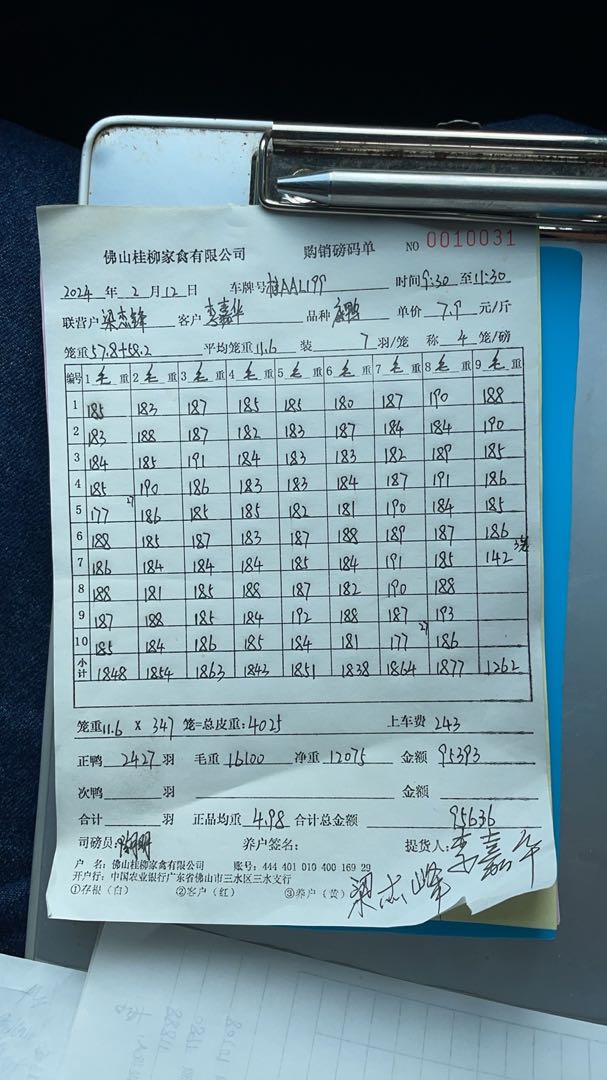 佛山桂柳家禽有限公司 购销磅码单 NO 0010031
2024 年 2 月 12 日 车牌号 桂AAL199 时间 9:30 至 11:30
联营户 梁志锋 客户 李嘉华 品种 单价 7.9 元/斤
笼重 57.8+58.2 平均笼重 11.6 装 7 羽/笼 称 4 笼/磅
编号 1 毛 重 2 毛 重 3 毛 重 4 毛 重 5 毛 重 6 毛 重 7 毛 重 8 毛 重 9 毛 重
1 185 183 187 185 185 180 187 190 188
2 183 188 187 182 183 187 184 184 190
3 184 185 191 184 183 183 182 189 185
4 185 190 186 183 183 184 187 191 186
5 177 27 186 185 185 182 181 190 184 185
6 188 185 187 183 187 188 189 187 186
7 186 184 184 184 185 184 191 185 142 3笼
8 188 181 185 188 187 182 190 188
9 187 188 185 184 192 188 187 193
10 185 184 186 185 184 181 177 27 186
小计 1848 1854 1863 1843 1851 1838 1864 1877 1262
笼重 11.6 X 347 笼=总皮重: 4025 上车费 243
正鸭 2427 羽 毛重 16100 净重 12075 金额 95393
次鸭 羽 金额
合计 羽 正品均重 4.98 合计总金额 95636
司磅员: 养户签名: 提货人: 李嘉华
户 名: 佛山桂柳家禽有限公司 账号: 444 401 010 400 169 29
开户行: 中国农业银行广东省佛山市三水区三水支行
①存根（白） ②客户（红） ③养户（黄） 梁志峰